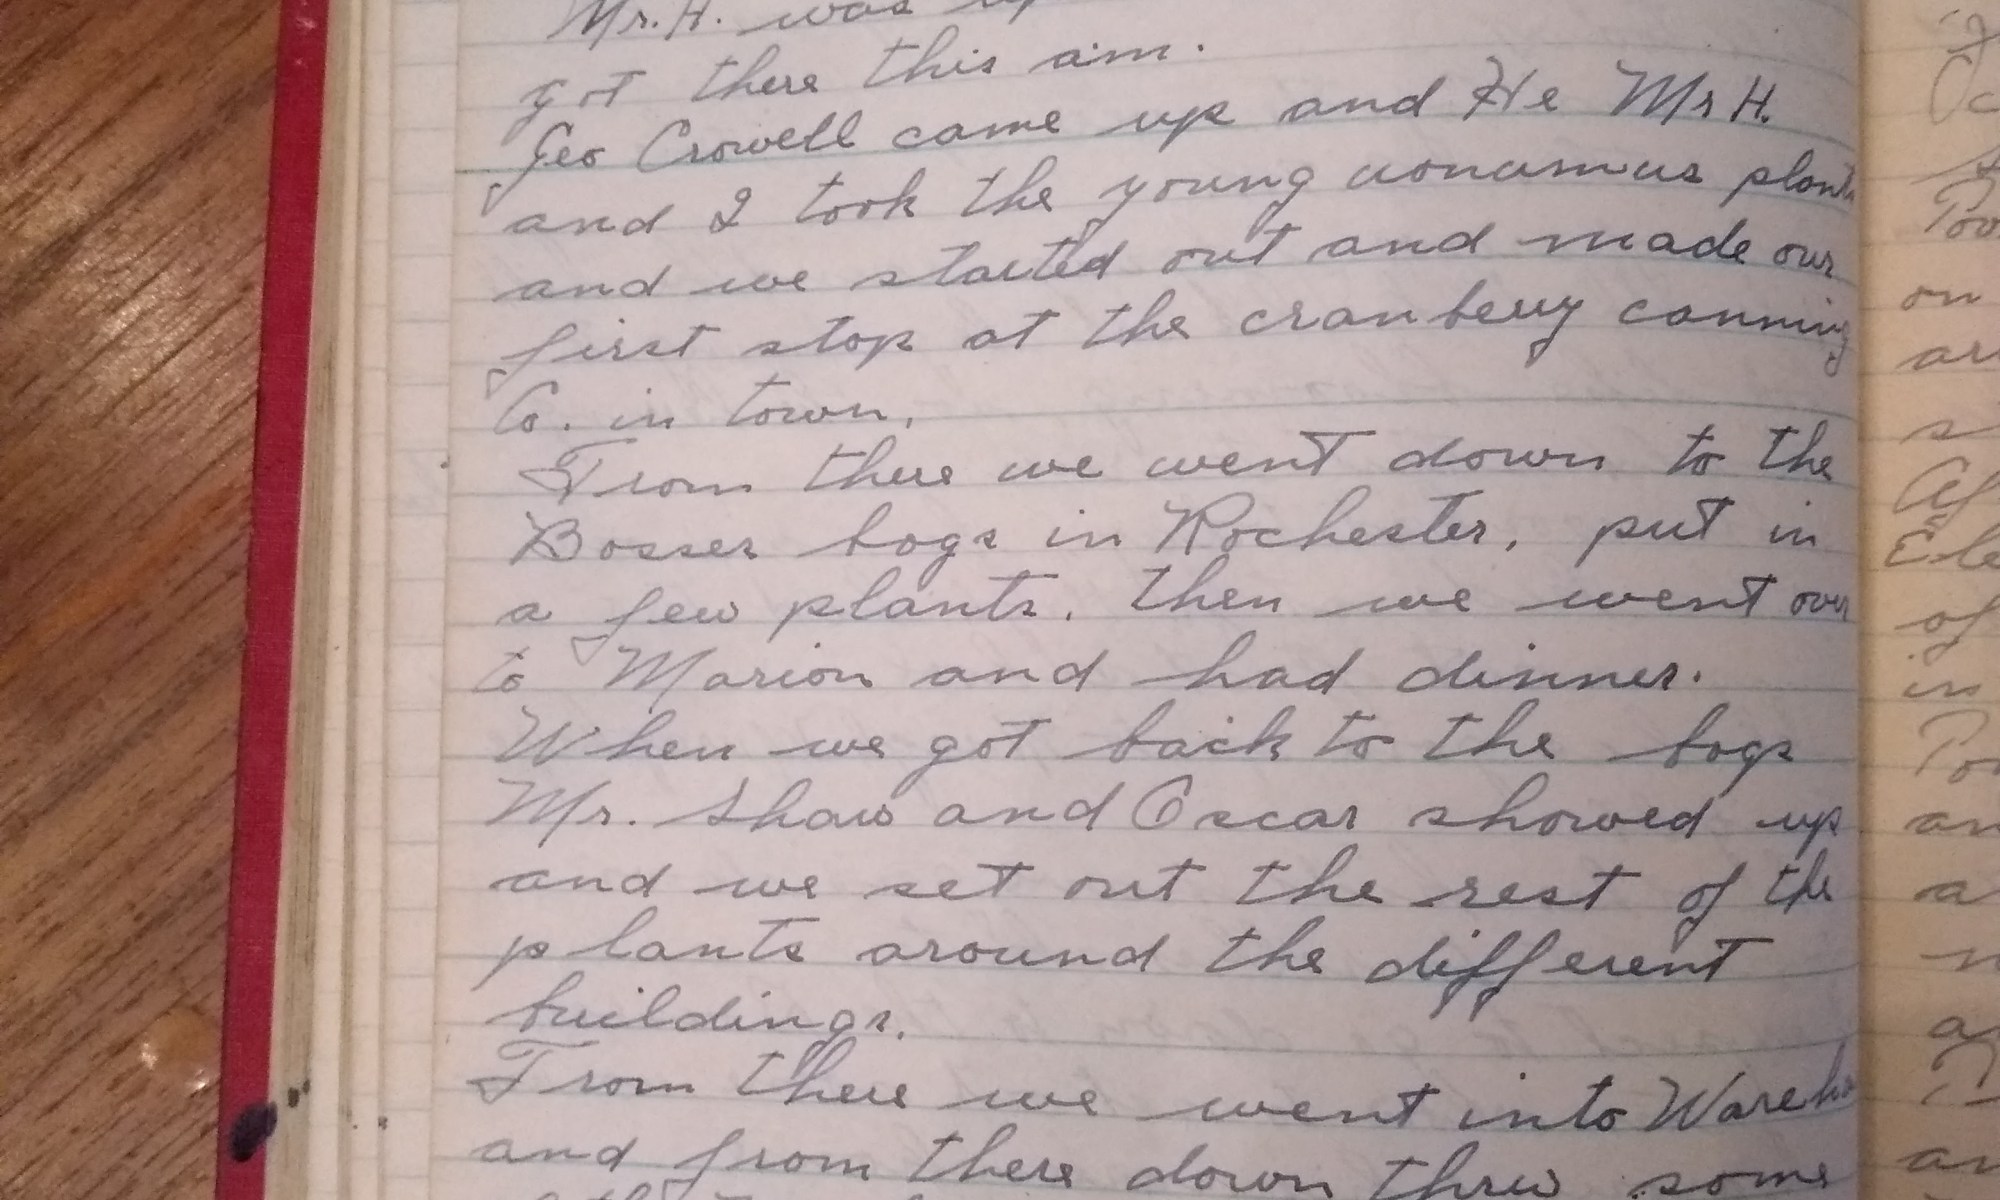 Mr. H. was up
got there this am.
Geo Crowell came up and He Mr H.
and I took the young uonumus plants
and we started out and made our
first stop at the cranberry canning
Co. in town.
From there we went down to the
Bosser bogs in Rochester, put in
a few plants. then we went over
to Marion and had dinner.
When we got back to the bogs
Mr. Shaw and Oscar showed up
and we set out the rest of the
plants around the different
buildings.
From there we went into Wareha
and from there down threw some